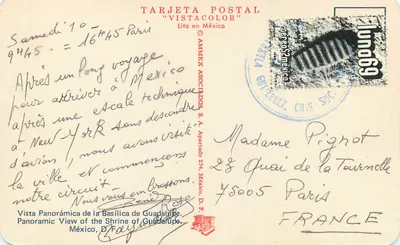 TARJETA POSTAL
"VISTACOLOR"
Lito en México
Samedi 10 -
9H45 - = 16H45 Paris
Après un long voyage
pour arriver à Mexico
après une escale technique
à New-York sans descendre
d'avion, nous avons visité
la ville et commençons
notre circuit.
Nous vous embrassons.
Vista Panorámica de la Basílica de Guadalupe.
Panoramic View of the Shrine of Guadalupe.
México, D.F.
© AMMEX ASOCIADOS, S. A. Apartado 274, México, D. F.
luna69
Madame Pignot
28 Quai de la Tournelle
75005 Paris
FRANCE